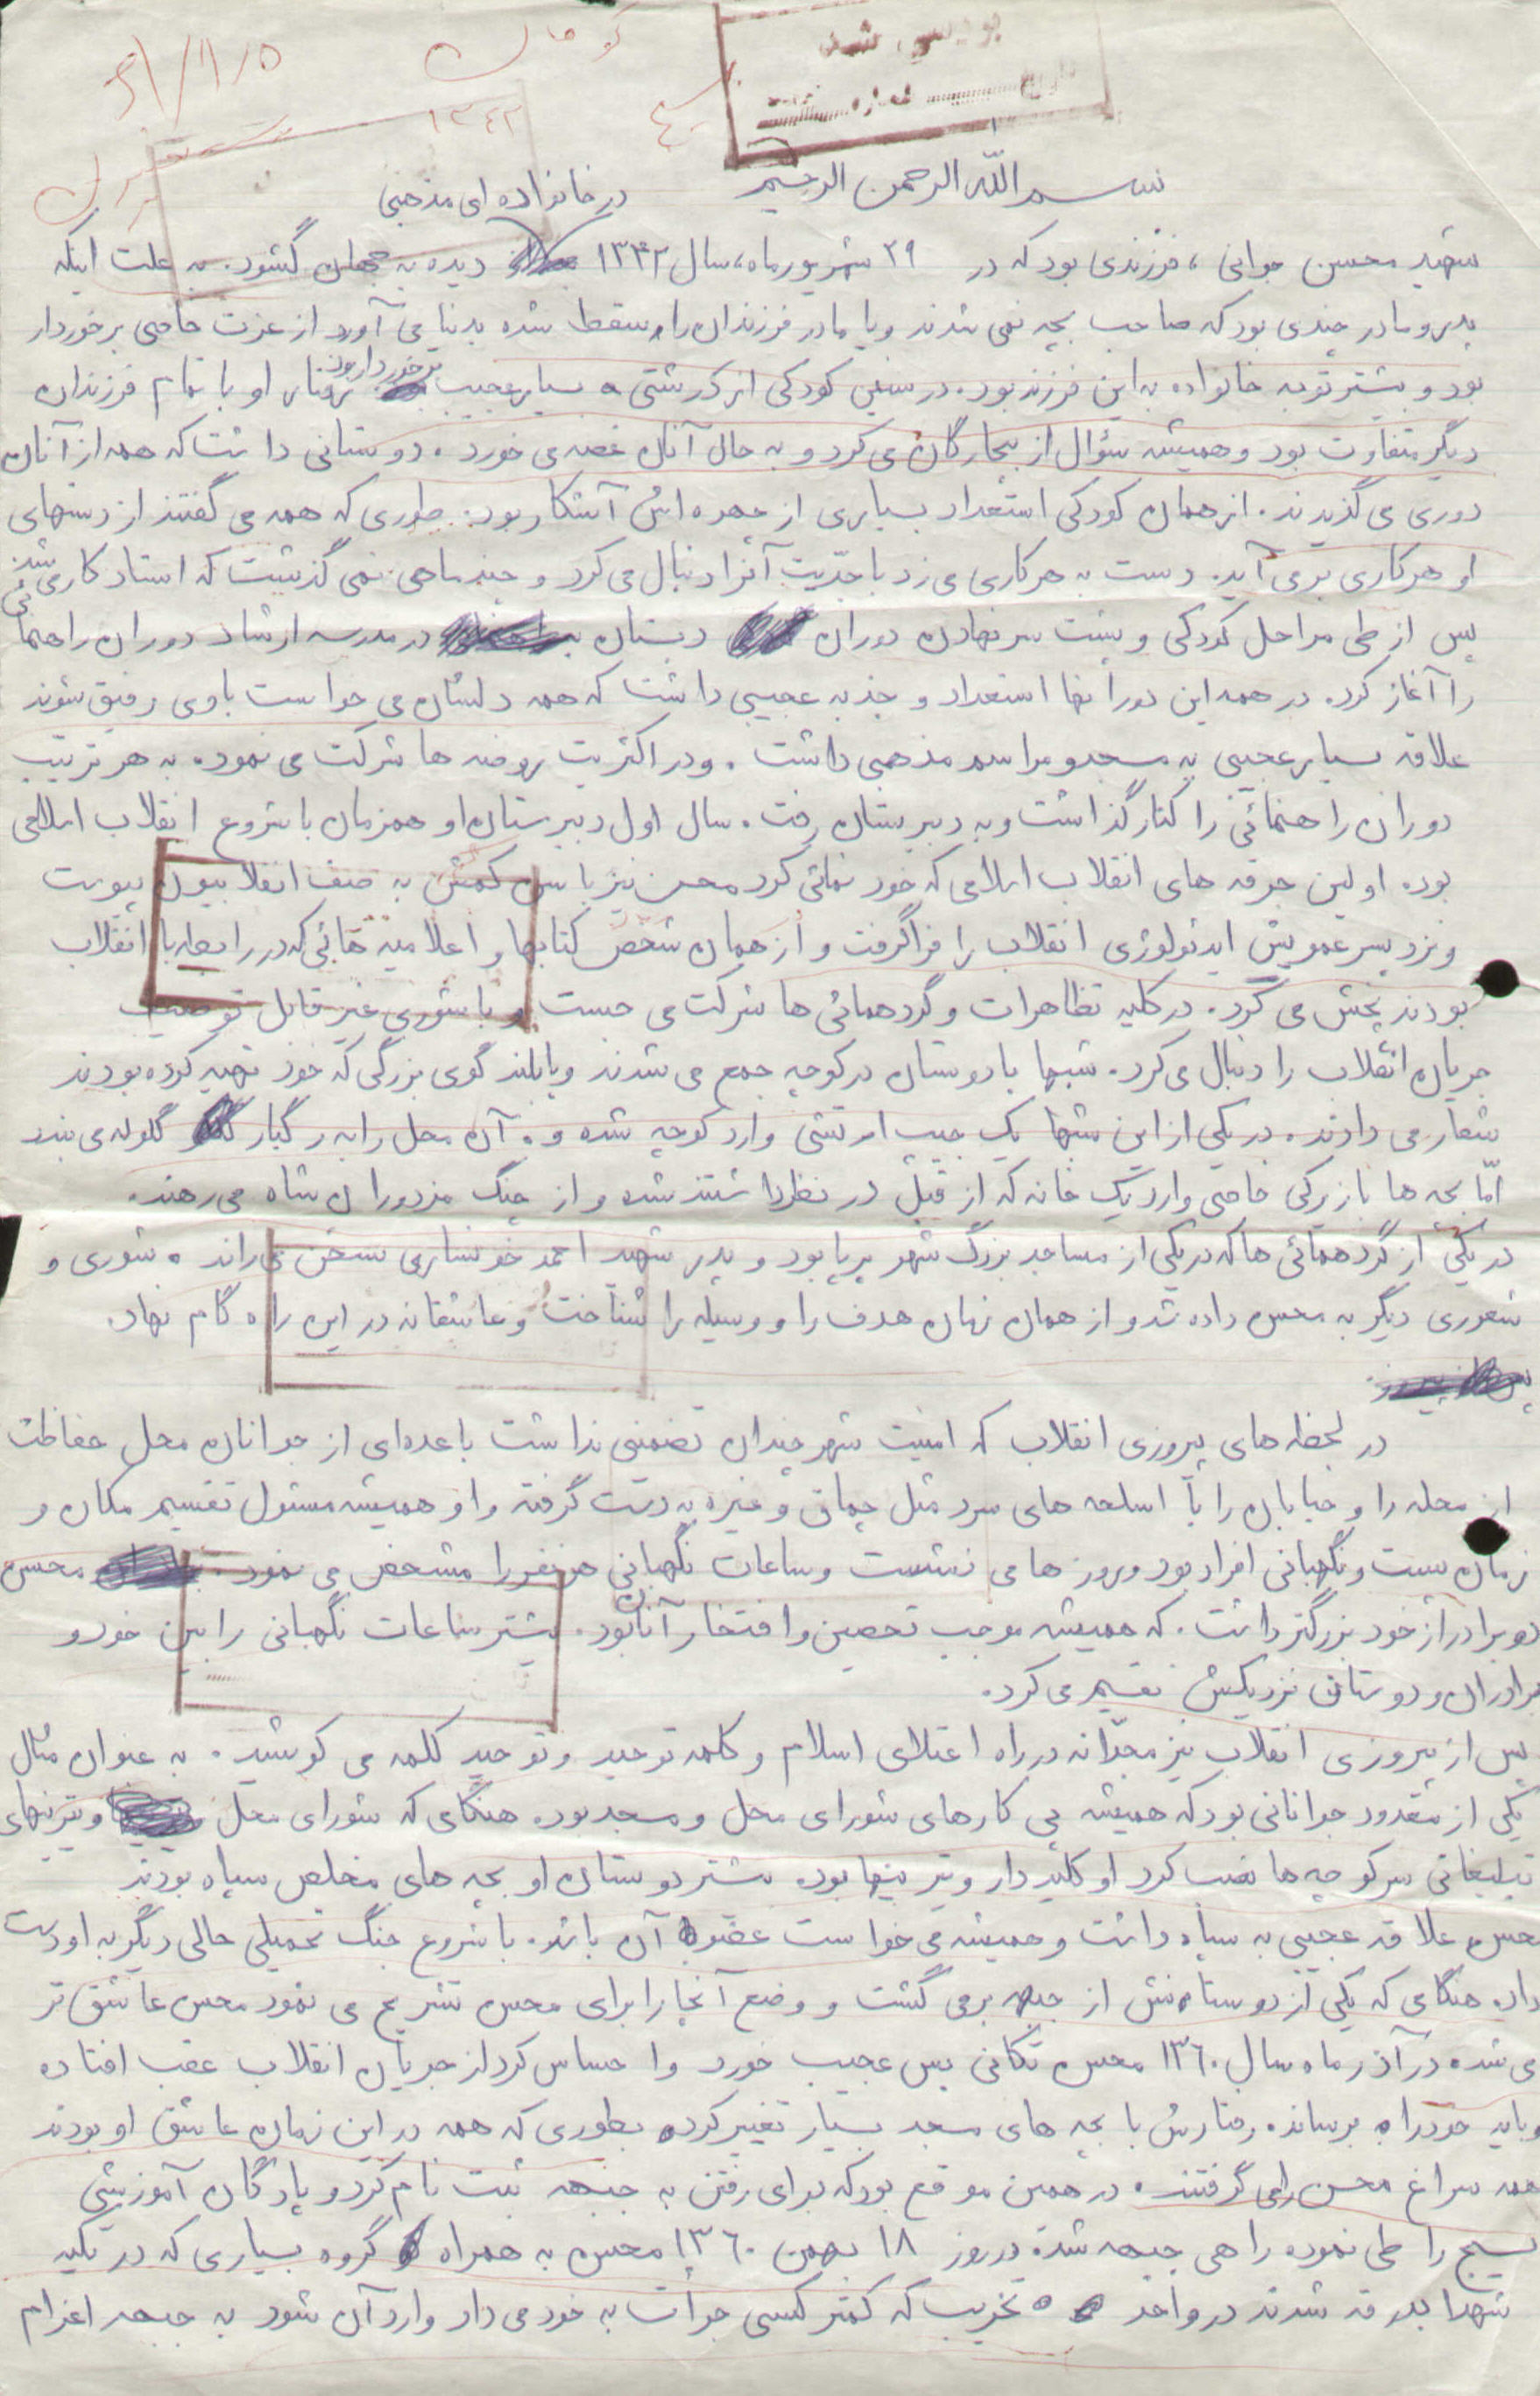 بررسی شد
شماره
۶۱/۱/۵
۱۳۴۲
بسم الله الرحمن الرحیم
در خانواده ای مذهبی
شهید محسن جوانی ، فرزندی بود که در ۲۹ شهریور ماه، سال ۱۳۴۲ دیده به جهان گشود. به علت اینکه
پدر و مادر چندی بود که صاحب بچه نمی شدند و یا مادر فرزندان را سقط شده بدنیا می آورد از عزت خاصی برخوردار
بود و بیشتر توجه خانواده به این فرزند بود. در سنین کودکی از درشتی بسیار عجیب برخوردار بود رفتار او با تمام فرزندان
دیگر متفاوت بود و همیشه سؤال از بیچارگان می کرد و به حال آنان غصه می خورد . دوستانی داشت که همه از آنان
دوری می گزیدند . از همان کودکی استعداد بسیاری از چهره اش آشکار بود. طوری که همه می گفتند از دستهای
او هر کاری بر می آید. دست به هر کاری می زد با جدّیت آنرا دنبال می کرد و چند ماهی نمی گذشت که استاد کاری شد
پس از طی مراحل کودکی و پشت سر نهادن دوران دبستان در مدرسه ارشاد دوران راهنمائی
را آغاز کرد. در همه این دورانها استعداد و جذبه عجیبی داشت که همه دلشان می خواست با وی رفیق شوند
علاقه بسیار عجیبی به مسجد و مراسم مذهبی داشت . و در اکثریت روضه ها شرکت می نمود. به هر ترتیب
دوران راهنمائی را کنار گذاشت و به دبیرستان رفت . سال اول دبیرستان او همزمان با شروع انقلاب اسلامی
بود. اولین جرقه های انقلاب اسلامی که خود نمائی کرد محسن نیز با سن کمش به صف انقلابیون پیوست
و نزد پسر عمویش ایدئولوژی انقلاب را فرا گرفت و از همان شخص کتابها و اعلامیه هائی که در رابطه با انقلاب
بودند پخش می کرد . در کلیه تظاهرات و گردهمائی ها شرکت می جست و با شوری غیر قابل توصیف
جریان انقلاب را دنبال می کرد. شبها با دوستان در کوچه جمع می شدند و با بلند گوی بزرگی که خود تهیه کرده بودند
شعار می دادند . در یکی از این شبها یک جیپ ارتشی وارد کوچه شده و آن محل را به رگبار گلوله می بندد
امّا بچه ها با زیرکی خاصی وارد یک خانه که از قبل در نظر داشتند شده و از چنگ مزدوران شاه می رهند.
در یکی از گردهمائی ها که در یکی از مساجد بزرگ شهر برپا بود و پدر شهید احمد خونساری سخن می راند ، شوری و
شعوری دیگر به محسن داده شد و از همان زمان هدف را و وسیله را شناخت و عاشقانه در این راه گام نهاد.
در لحظه های پیروزی انقلاب که امنیت شهر چندان تضمینی نداشت با عده ای از جوانان محل حفاظت
از محله را و خیابان را با اسلحه های سرد مثل چماق و غیره به دست گرفته و او همیشه مسئول تقسیم مکان و
زمان پست و نگهبانی افراد بود و روز ها می نشست و ساعات نگهبانی هر نفر را مشخص می نمود . محسن
دو برادر از خود بزرگتر داشت . که همیشه موجب تحصین و افتخار آنان بود . بیشتر ساعات نگهبانی را بین خود و
برادران و دوستان نزدیکش تقسیم می کرد.
پس از پیروزی انقلاب نیز مجدّانه در راه اعتلای اسلام و کلمه توحید و توحید کلمه می کوشید . به عنوان مثال
یکی از معدود جوانانی بود که همیشه پی کارهای شورای محل و مسجد بود. هنگامی که شورای محل ویترینهای
تبلیغاتی سر کوچه ها نصب کرد او کلید دار ویترینها بود. بیشتر دوستان او بچه های مخلص سپاه بودند
محسن علاقه عجیبی به سپاه داشت و همیشه می خواست عضو آن باشد. با شروع جنگ تحمیلی حالی دیگر به او دست
داد. هنگامی که یکی از دوستانش از جبهه برمی گشت و وضع آنجا را برای محسن تشریح می نمود محسن عاشق تر
می شد. در آذر ماه سال ۱۳۶۰ محسن تکانی بس عجیب خورد و احساس کرد از جریان انقلاب عقب افتاده
و باید خود را برساند. رفتارش با بچه های مسجد بسیار تغییر کرده بطوری که همه در این زمان عاشق او بودند
همه سراغ محسن را می گرفتند . در همین موقع بود که برای رفتن به جبهه ثبت نام کرد و پادگان آموزشی
بسیج را طی نموده راهی جبهه شد. در روز ۱۸ بهمن ۱۳۶۰ محسن به همراه گروه بسیاری که در تکیه
شهدا بدرقه شدند در واحد تخریب که کمتر کسی جرأت به خود می داد وارد آن شود به جبهه اعزام